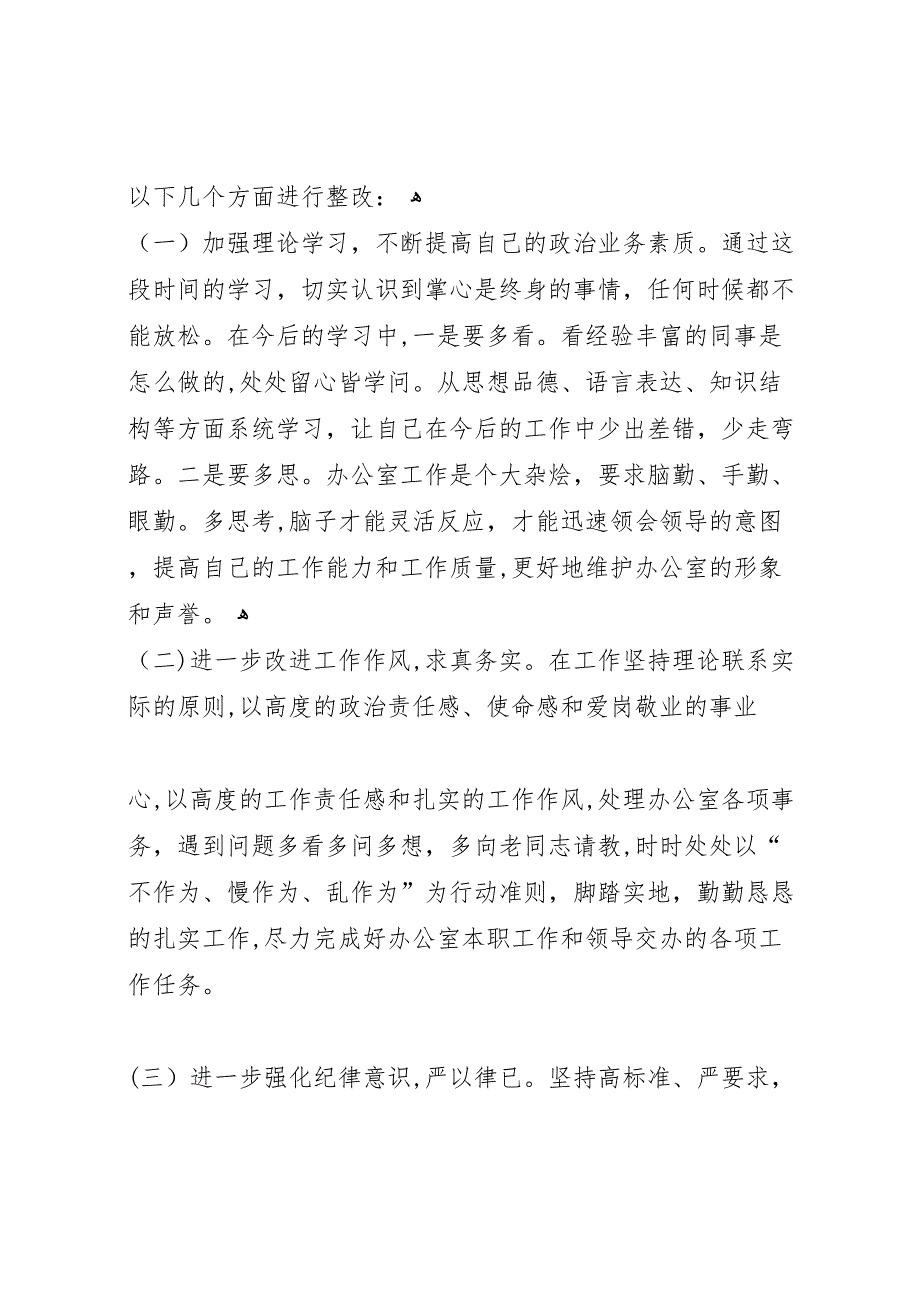 以下几个方面进行整改： ﻫ
（一）加强理论学习，不断提高自己的政治业务素质。通过这
段时间的学习，切实认识到掌心是终身的事情，任何时候都不
能放松。在今后的学习中,一是要多看。看经验丰富的同事是
怎么做的,处处留心皆学问。从思想品德、语言表达、知识结
构等方面系统学习，让自己在今后的工作中少出差错，少走弯
路。二是要多思。办公室工作是个大杂烩，要求脑勤、手勤、
眼勤。多思考,脑子才能灵活反应，才能迅速领会领导的意图
，提高自己的工作能力和工作质量,更好地维护办公室的形象
和声誉。 ﻫ
（二)进一步改进工作作风,求真务实。在工作坚持理论联系实
际的原则,以高度的政治责任感、使命感和爱岗敬业的事业
心,以高度的工作责任感和扎实的工作作风,处理办公室各项事
务，遇到问题多看多问多想，多向老同志请教,时时处处以“
不作为、慢作为、乱作为”为行动准则，脚踏实地，勤勤恳恳
的扎实工作,尽力完成好办公室本职工作和领导交办的各项工
作任务。
(三）进一步强化纪律意识,严以律已。坚持高标准、严要求，